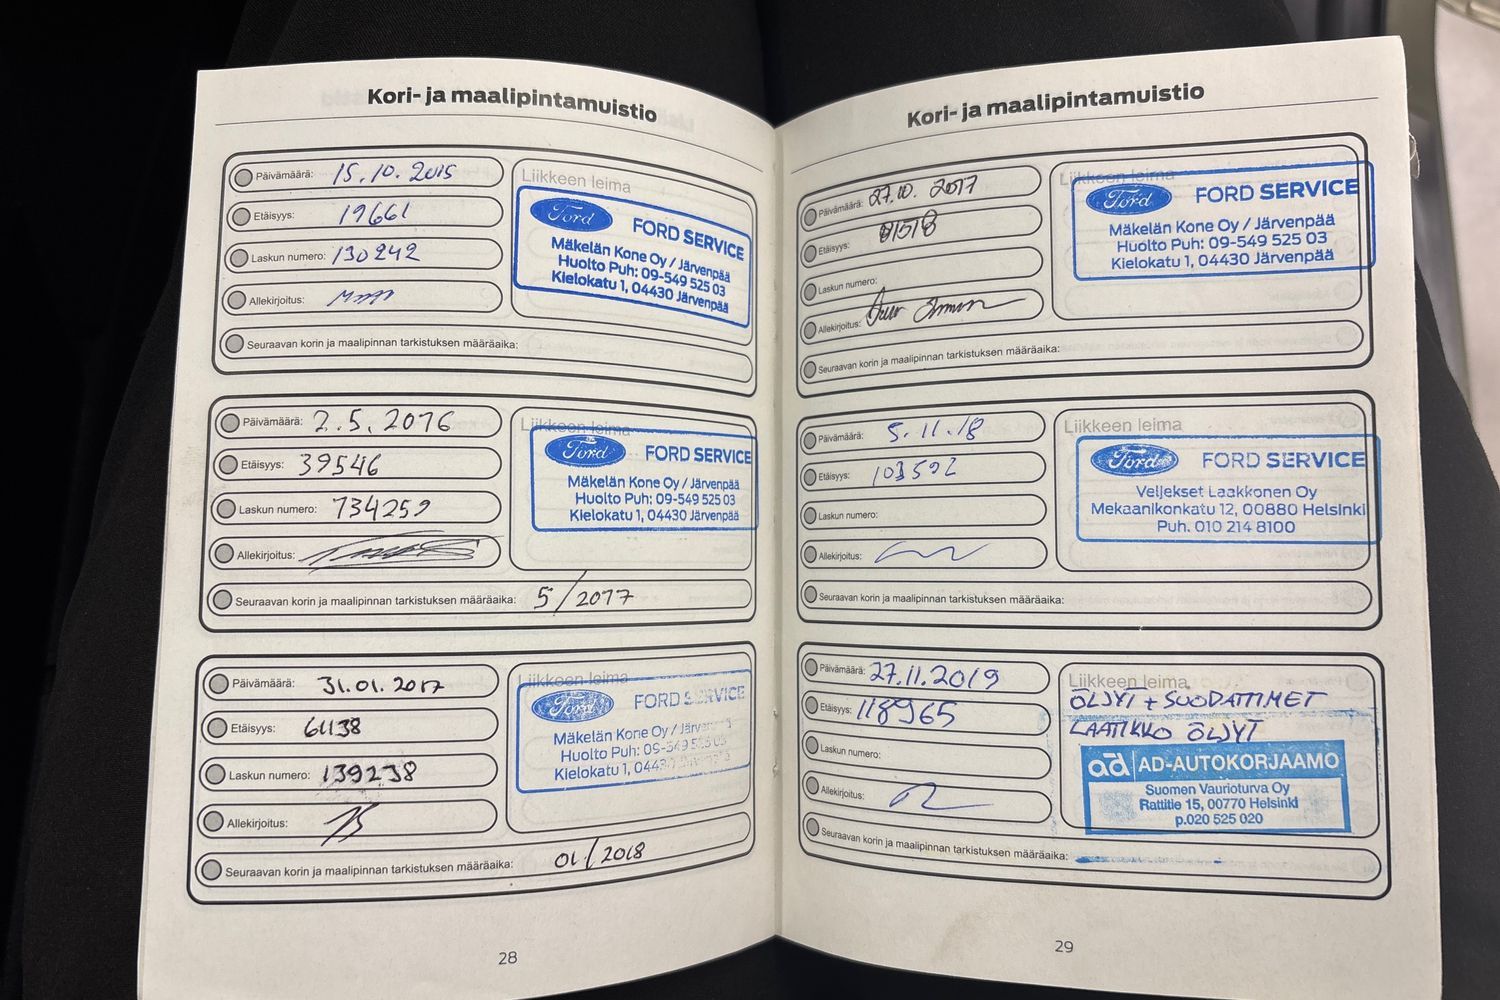 Kori- ja maalipintamuistio
Päivämäärä: 15.10.2015
Etäisyys: 19661
Laskun numero: 130242
Allekirjoitus:
Seuraavan korin ja maalipinnan tarkistuksen määräaika:
Liikkeen leima
Ford FORD SERVICE
Mäkelän Kone Oy / Järvenpää
Huolto Puh: 09-549 525 03
Kielokatu 1, 04430 Järvenpää
Päivämäärä: 2.5.2016
Etäisyys: 39546
Laskun numero: 134259
Allekirjoitus:
Seuraavan korin ja maalipinnan tarkistuksen määräaika: 5/2017
Liikkeen leima
Ford FORD SERVICE
Mäkelän Kone Oy / Järvenpää
Huolto Puh: 09-549 525 03
Kielokatu 1, 04430 Järvenpää
Päivämäärä: 31.01.2017
Etäisyys: 61138
Laskun numero: 139238
Allekirjoitus:
Seuraavan korin ja maalipinnan tarkistuksen määräaika: 01/2018
Liikkeen leima
Ford FORD SERVICE
Mäkelän Kone Oy / Järvenpää
Huolto Puh: 09-549 525 03
Kielokatu 1, 04430 Järvenpää
28
Kori- ja maalipintamuistio
Päivämäärä: 27.10.2017
Etäisyys:
Laskun numero:
Allekirjoitus:
Seuraavan korin ja maalipinnan tarkistuksen määräaika:
Liikkeen leima
Ford FORD SERVICE
Mäkelän Kone Oy / Järvenpää
Huolto Puh: 09-549 525 03
Kielokatu 1, 04430 Järvenpää
Päivämäärä: 5.11.18
Etäisyys: 103592
Laskun numero:
Allekirjoitus:
Seuraavan korin ja maalipinnan tarkistuksen määräaika:
Liikkeen leima
Ford FORD SERVICE
Veljekset Laakkonen Oy
Mekaanikonkatu 12, 00880 Helsinki
Puh. 010 214 8100
Päivämäärä: 27.11.2019
Etäisyys: 118965
Laskun numero:
Allekirjoitus:
Seuraavan korin ja maalipinnan tarkistuksen määräaika:
Liikkeen leima
ÖLJYT + SUODATTIMET
LAATIKKO ÖLJYT
ad AD-AUTOKORJAAMO
Suomen Vaurioturva Oy
Rattitie 15, 00770 Helsinki
p.020 525 020
29